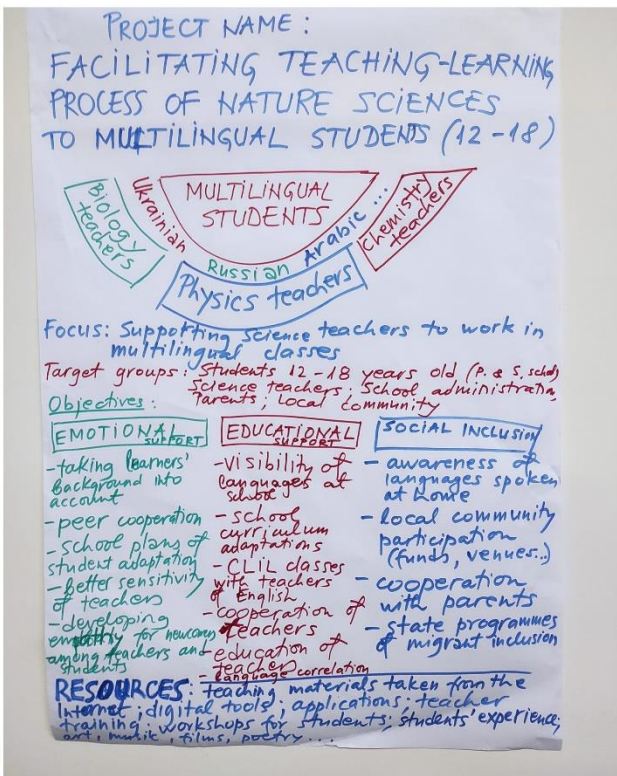 PROJECT NAME :
FACILITATING TEACHING-LEARNING
PROCESS OF NATURE SCIENCES
TO MULTILINGUAL STUDENTS (12-18)
MULTILINGUAL
STUDENTS
Biology
teachers
Ukrainian
Russian
Arabic ...
Chemistry
teachers
Physics teachers
Focus: Supporting science teachers to work in
multilingual classes
Target groups: Students 12-18 years old (P. & S. school)
Science teachers; School administration,
Parents; Local community
Objectives:
EMOTIONAL
SUPPORT
- taking learners'
background into
account
- peer cooperation
- school plans of
student adaptation
- better sensitivity
of teachers
- developing
empathy for newcomers
among teachers and
students
EDUCATIONAL
SUPPORT
- visibility of
languages at
school
- school
curriculum
adaptations
- CLIL classes
with teachers
of English
- cooperation of
teachers
- education of
teachers
- language correlation
SOCIAL INCLUSION
- awareness of
languages spoken
at home
- local community
participation
(funds, venues..)
- cooperation
with parents
- state programmes
of migrant inclusion
RESOURCES: teaching materials taken from the
Internet; digital tools; applications; teacher
training; workshops for students; students' experience;
art, musik, films, poetry ...